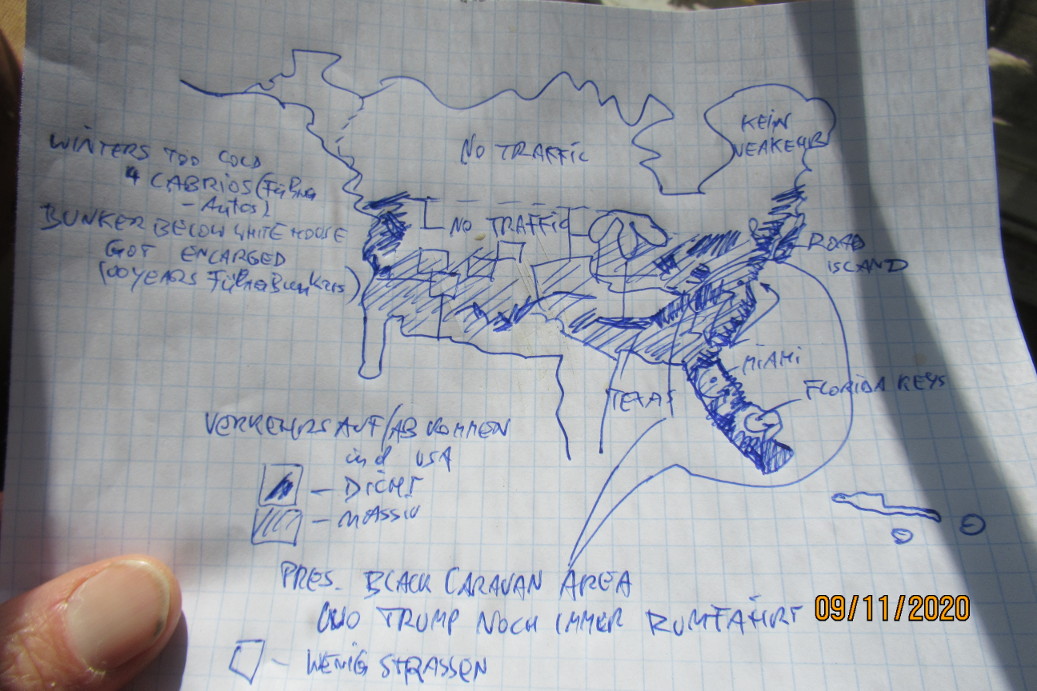 KEIN
VERKEHR
NO TRAFFIC
WINTERS TOO COLD
4 CABRIOS (Führer
- Autos)
BUNKER BELOW WHITE HOUSE
GOT ENLARGED
(00 YEARS Führer Bunkers)
NO TRAFFIC
ROAD
ISLAND
MIAMI
FLORIDA KEYS
TEXAS
VERKEHRSAUF/AB KOMMEN
in d USA
- DICHT
- MASSIV
PRES. BLACK CARAVAN AREA
WO TRUMP NOCH IMMER RUMFÄHRT
09/11/2020
- WENIG STRASSEN